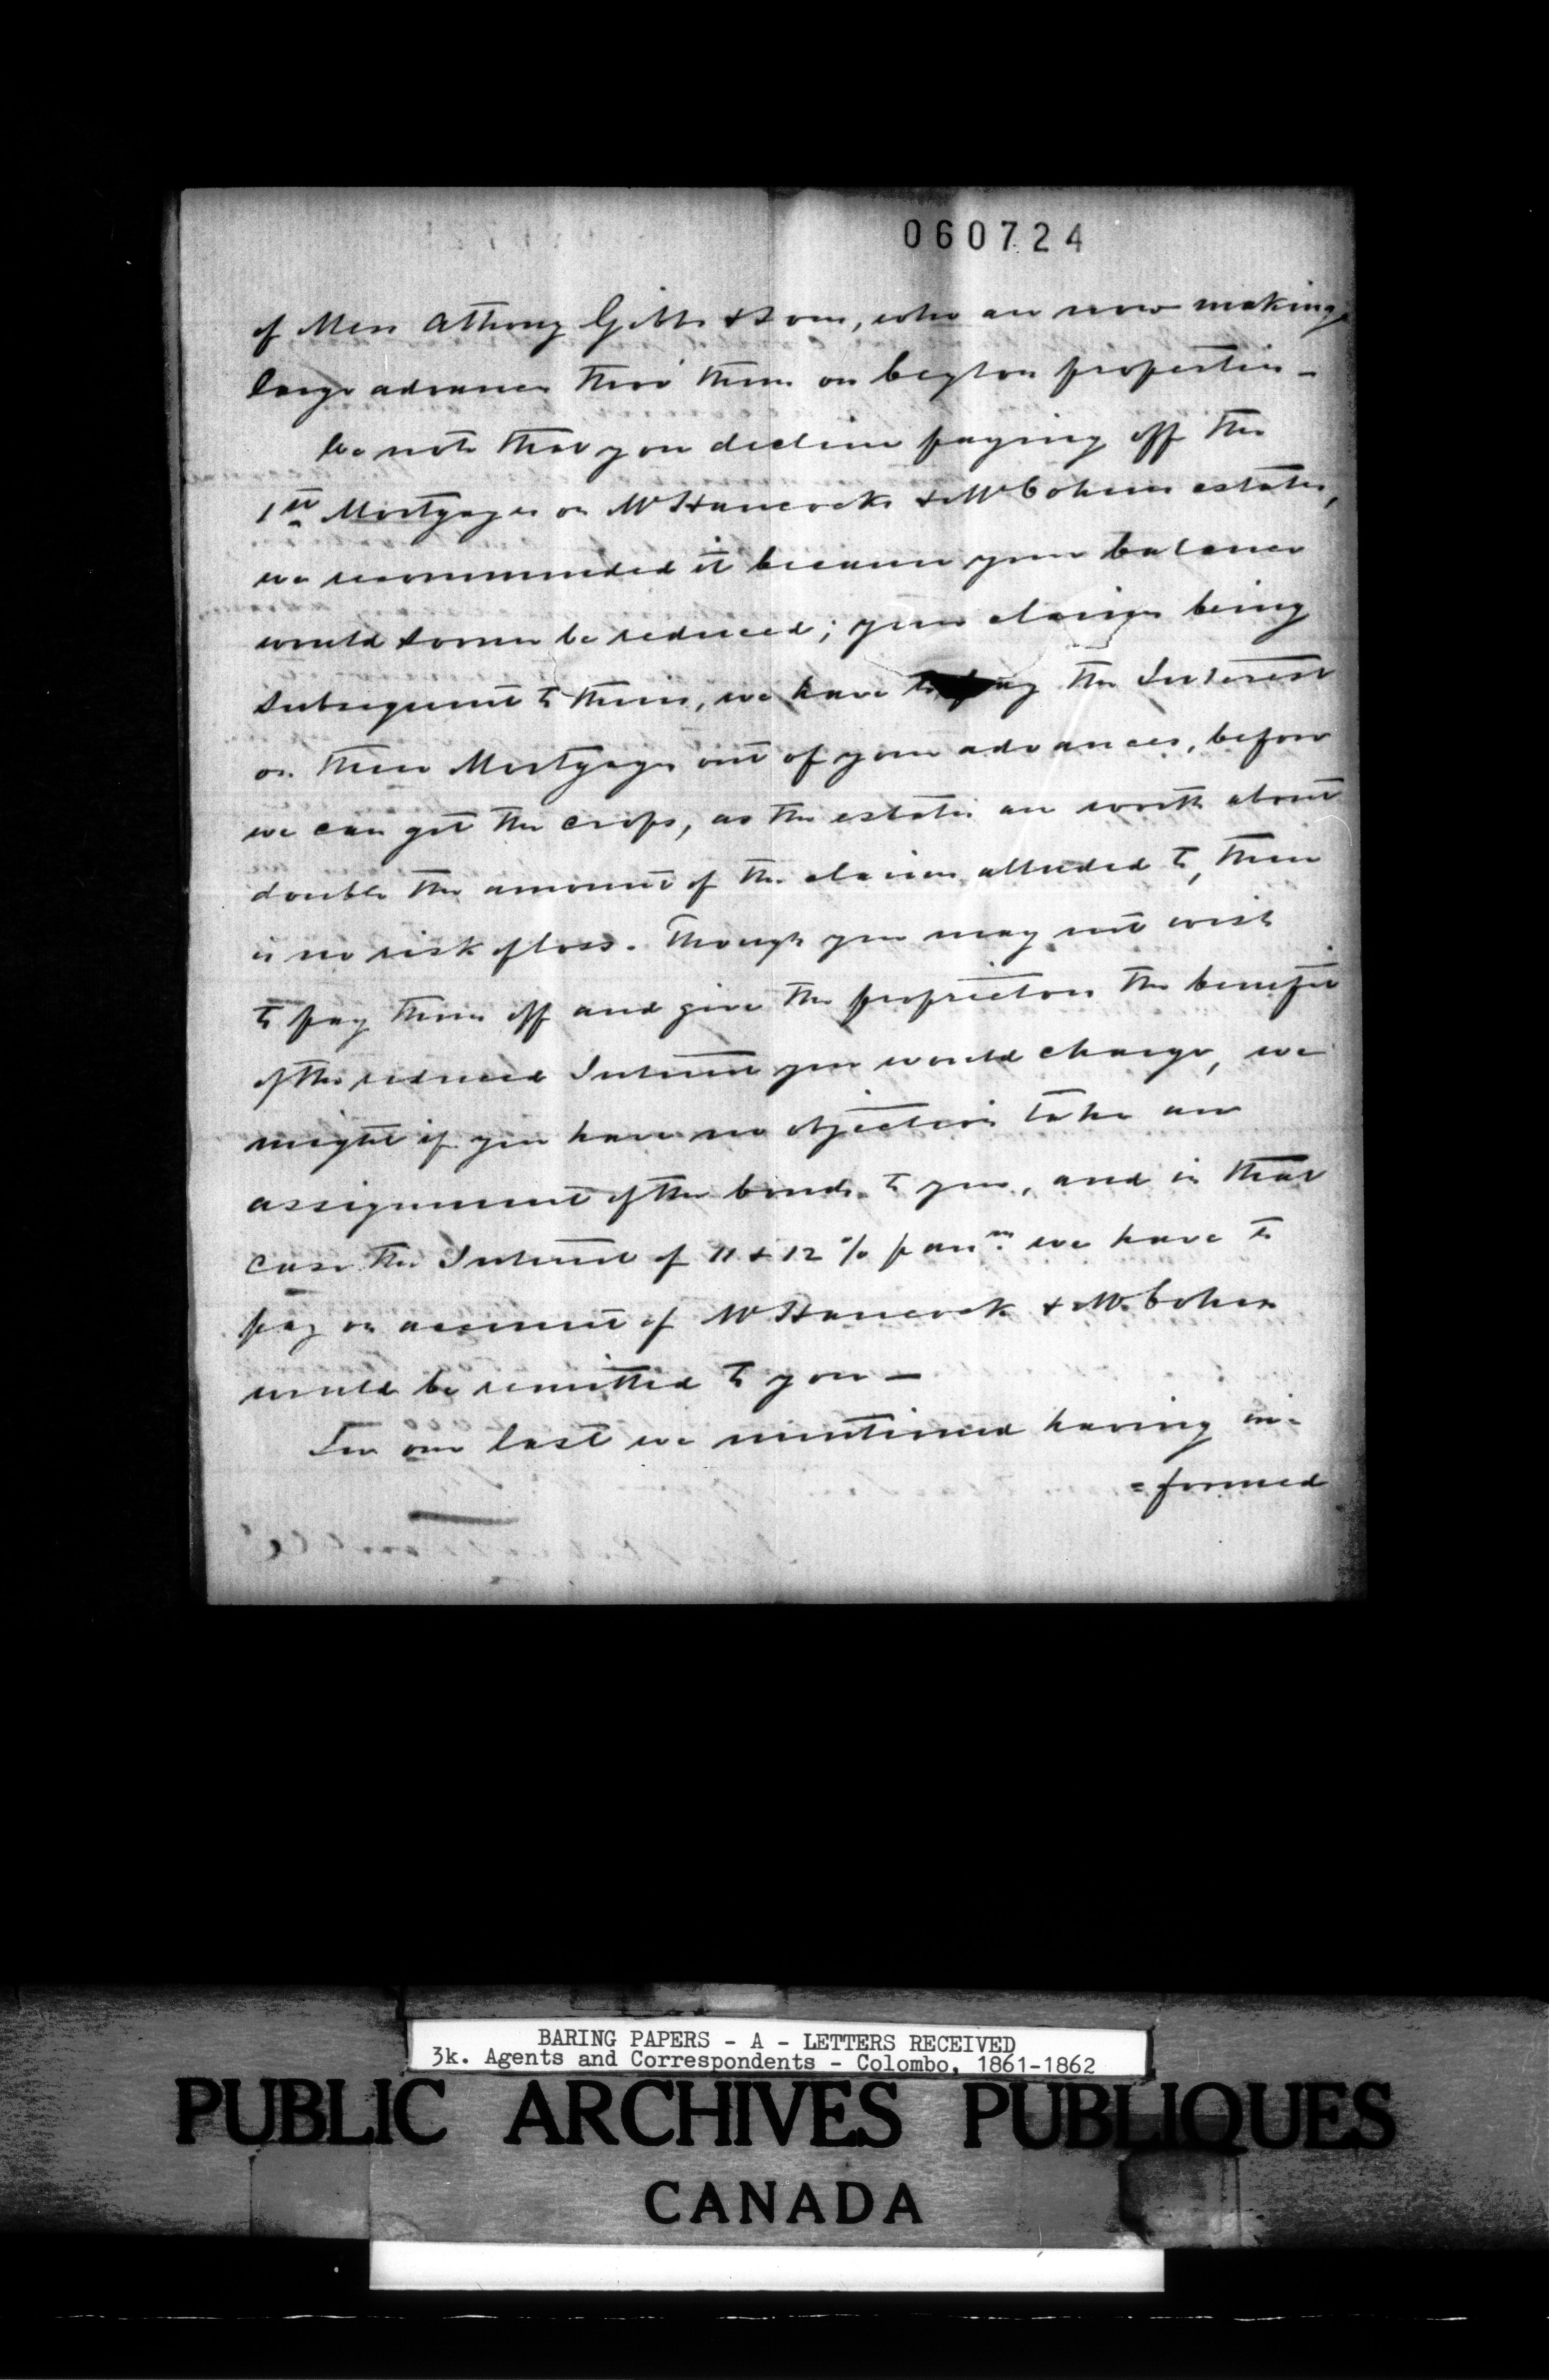 060724
of Mess Athony Gibbs & Sons, who are now making
large advances thro' them on Ceylon properties -
We note that you decline paying off the
1st Mortgages on Mr Hancocks & Mr Cohens estates,
we recommended it because your balance
would sooner be reduced; your claims being
subsequent to theirs, we have to pay the Interest
on these Mortgages out of your advances, before
we can get the crops, as the estates are worth about
double the amount of the claims alluded to, there
is no risk of loss. Though you may not wish
to pay them off and give the proprietors the benefit
of the reduced Interest you would charge, we
might if you have no objection take an
assignment of the bonds to you, and in that
case the Interest of 11 & 12 % p annm we have to
pay on account of Mr Hancock & Mr Cohen
would be remitted to you -
In our last we mentioned having in=
=formed
BARING PAPERS - A - LETTERS RECEIVED
3k. Agents and Correspondents - Colombo, 1861-1862
PUBLIC ARCHIVES PUBLIQUES
CANADA